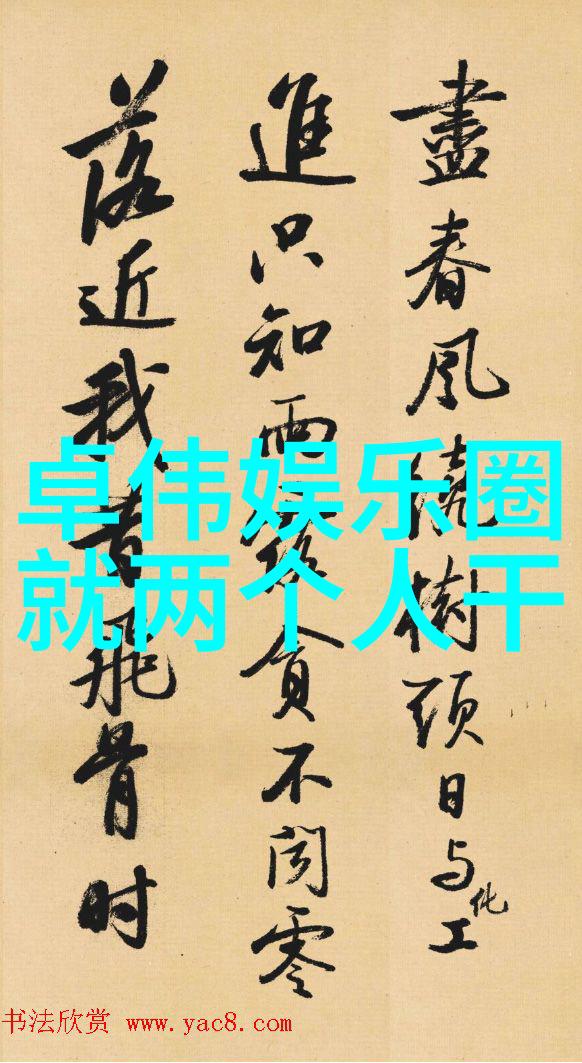 盡春風繞樹頭日与化工
進只知雨貪不聞零
落近我昔飛骨时
卓伟娱乐圈
就两个人干
书法欣赏 www.yac8.com